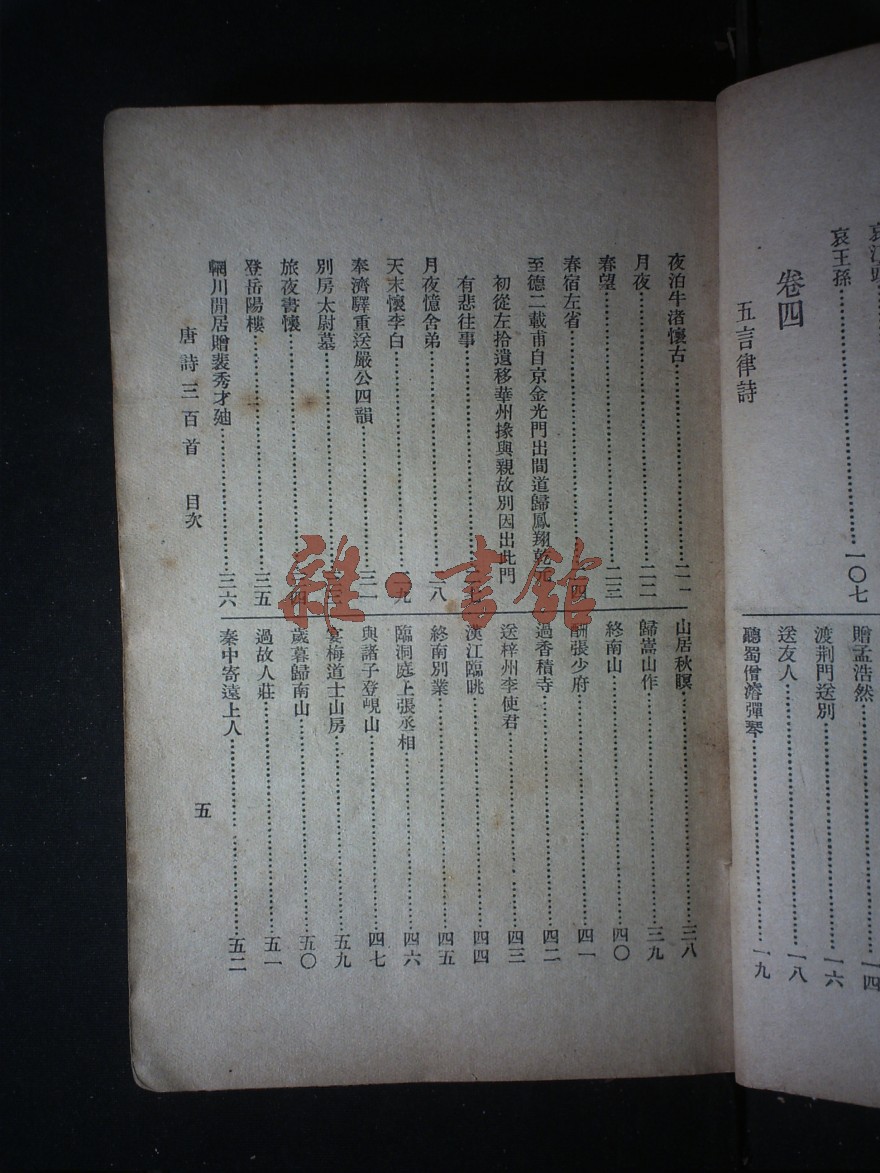 哀王孫……一〇七
卷四
五言律詩
贈孟浩然……一四
渡荆門送別……一六
送友人……一八
聽蜀僧濬彈琴……一九
夜泊牛渚懷古……二一
月夜……二二
春望……二三
春宿左省……二四
至德二載甫自京金光門出間道歸鳳翔乾元
初從左拾遺移華州掾與親故別因出此門
有悲往事
月夜憶舍弟……二八
天末懷李白……二九
奉濟驛重送嚴公四韻……三一
別房太尉墓
旅夜書懷……三四
登岳陽樓……三五
輞川閒居贈裴秀才廸……三六
山居秋暝……三八
歸嵩山作……三九
終南山……四〇
酬張少府……四一
過香積寺……四二
送梓州李使君……四三
漢江臨眺……四四
終南別業……四五
臨洞庭上張丞相……四六
與諸子登峴山……四七
宴梅道士山房……五九
歲暮歸南山……五〇
過故人莊……五一
秦中寄遠上人……五二
唐詩三百首 目次
五
雜·書館